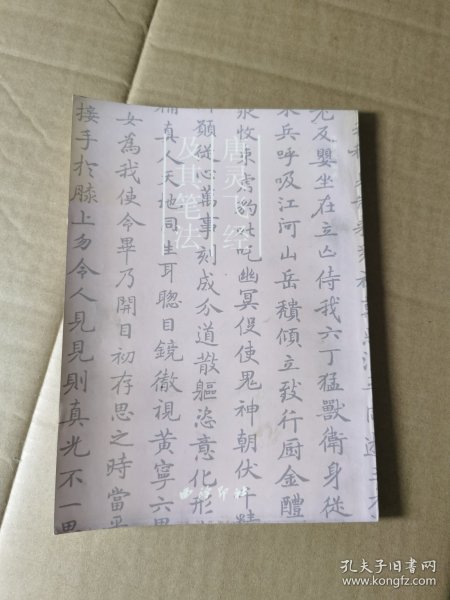 唐灵飞经
及其笔法
及嬰坐在立亡侍我六丁猛獸衛身從
兵呼吸江河山岳穨傾立致行厨金醴
束虎豹叱吒幽冥役使鬼神朝伏千精
願從心萬事刻成分道散軀恣意化形
真人天地同生耳聰目鏡徹視黃寧六甲
女為我使令畢乃開目初存思之時當平
接手於膝上勿令人見見則真光不一思
西泠印社
孔夫子旧书网
www.kongfz.com